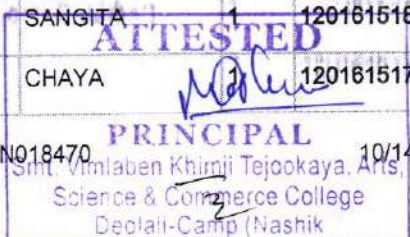 SANGITA 1 120161518
ATTESTED
CHAYA 1 120161517
PRINCIPAL
N018470 10/14
Smt. Vimlaben Khimji Tejookaya, Arts,
Science & Commerce College
Deolali-Camp (Nashik